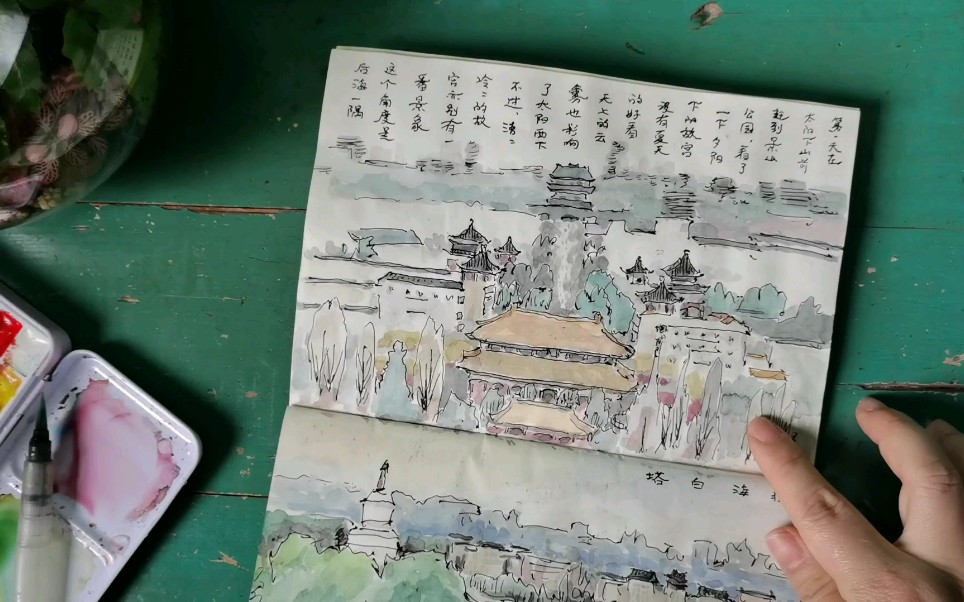 第一天在
太阳下山前
赶到景山
公园，看了
一下夕阳
下的故宫
没有夏天
的好看
天上的云
雾也影响
了太阳西下
不过，清二
冷二的故
宫亦别有一
番景象
这个角度是
后海一隅
北海白塔